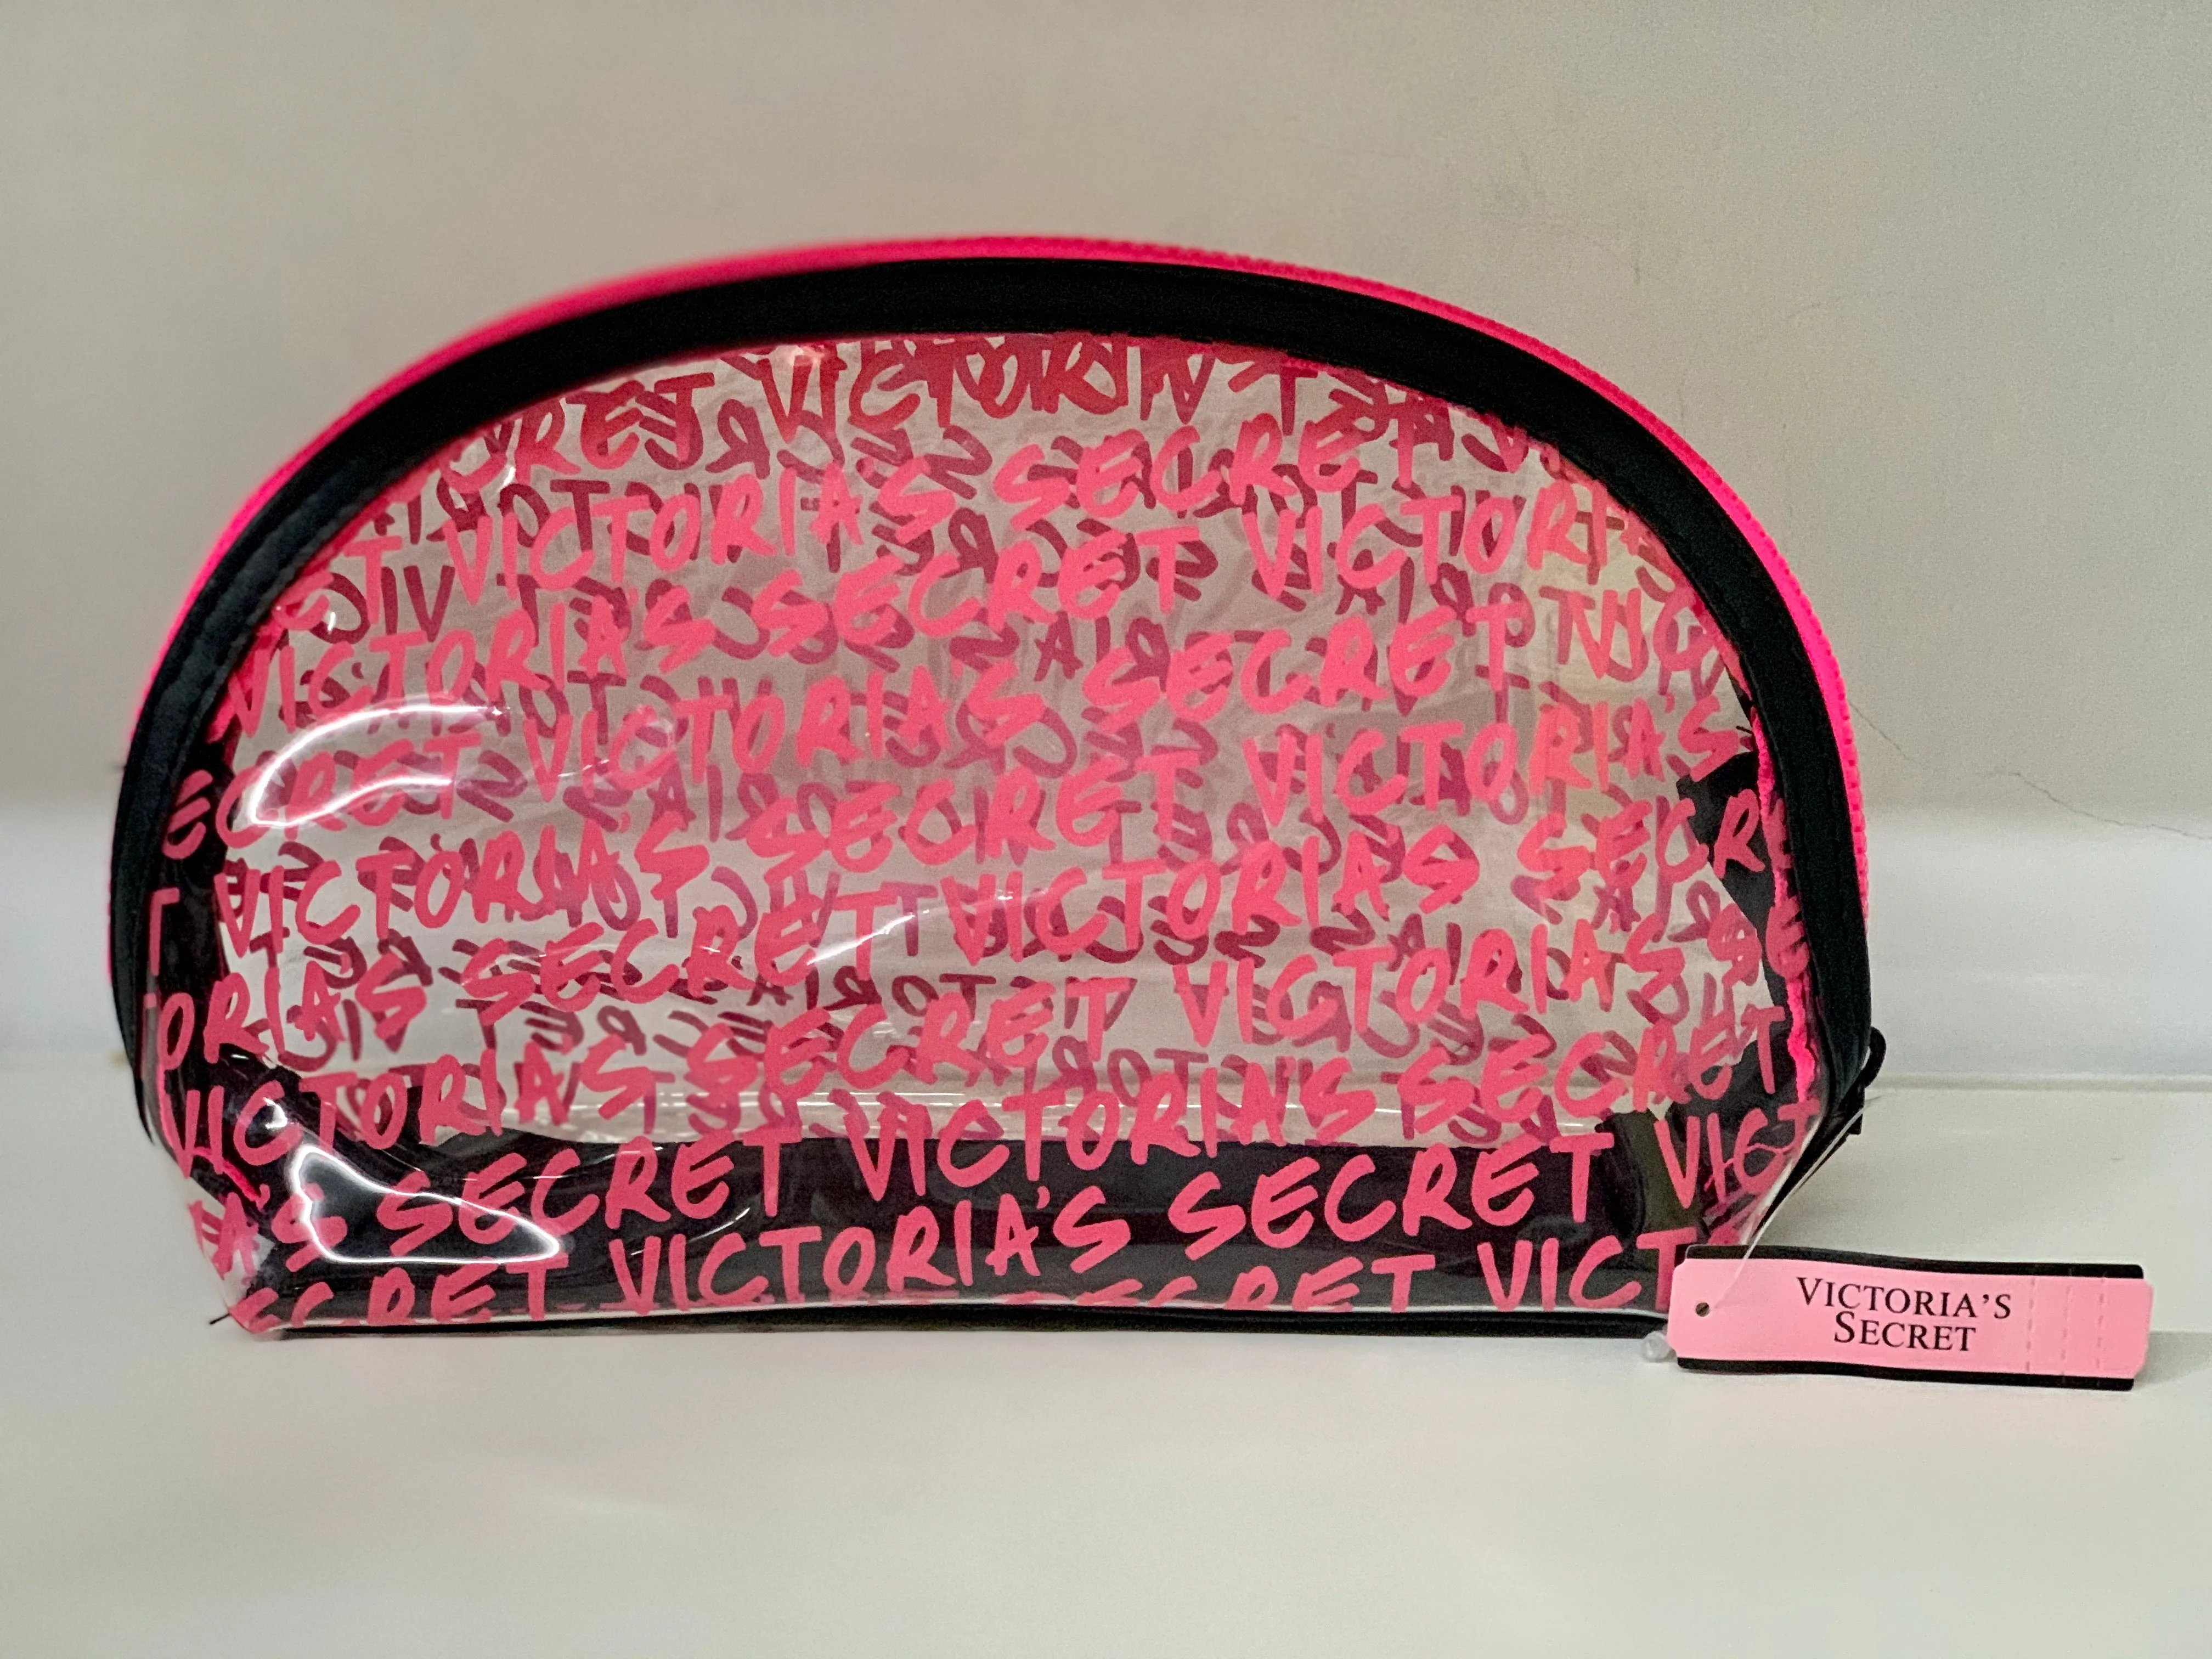 VICTORIA'S SECRET
ET VICTORIA'S SECRET VICTORI
VICTORIA'S SECRET
ECRET VICTORIA'S SECRET VICTORIA'S
T VICTORIA'S SECRET VICTORIA'S SECRE
ORIA'S SECRET VICTORIA'S SE
VICTORIA'S SECRET VICTORIA'S SECRET
IA'S SECRET VICTORIA'S SECRET VICT
SECRET VICTORIA'S SECRET VICT
VICTORIA'S
SECRET